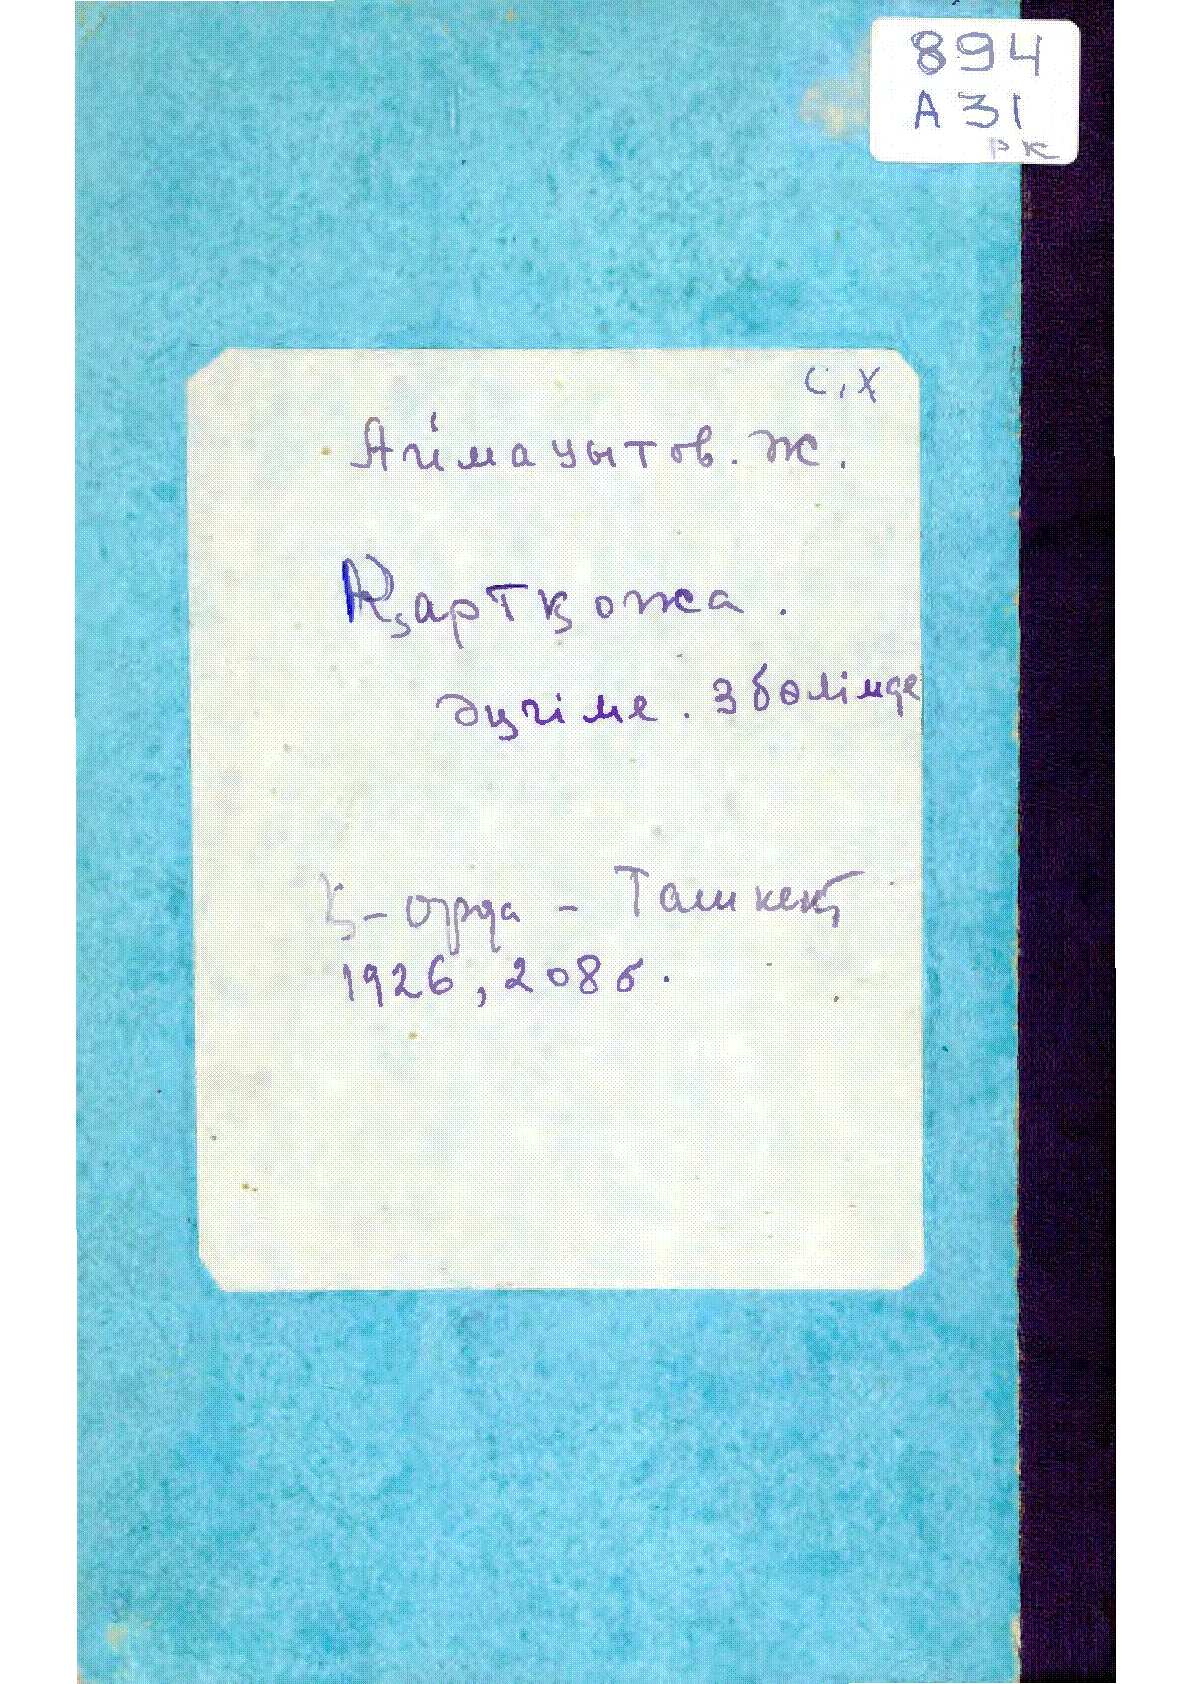 894
А 31
РК
С, Х
Аймауытов. Ж.
Қартқожа.
әңгіме. 3 бөлімде
Қ-орда - Ташкент
1926, 208 б.